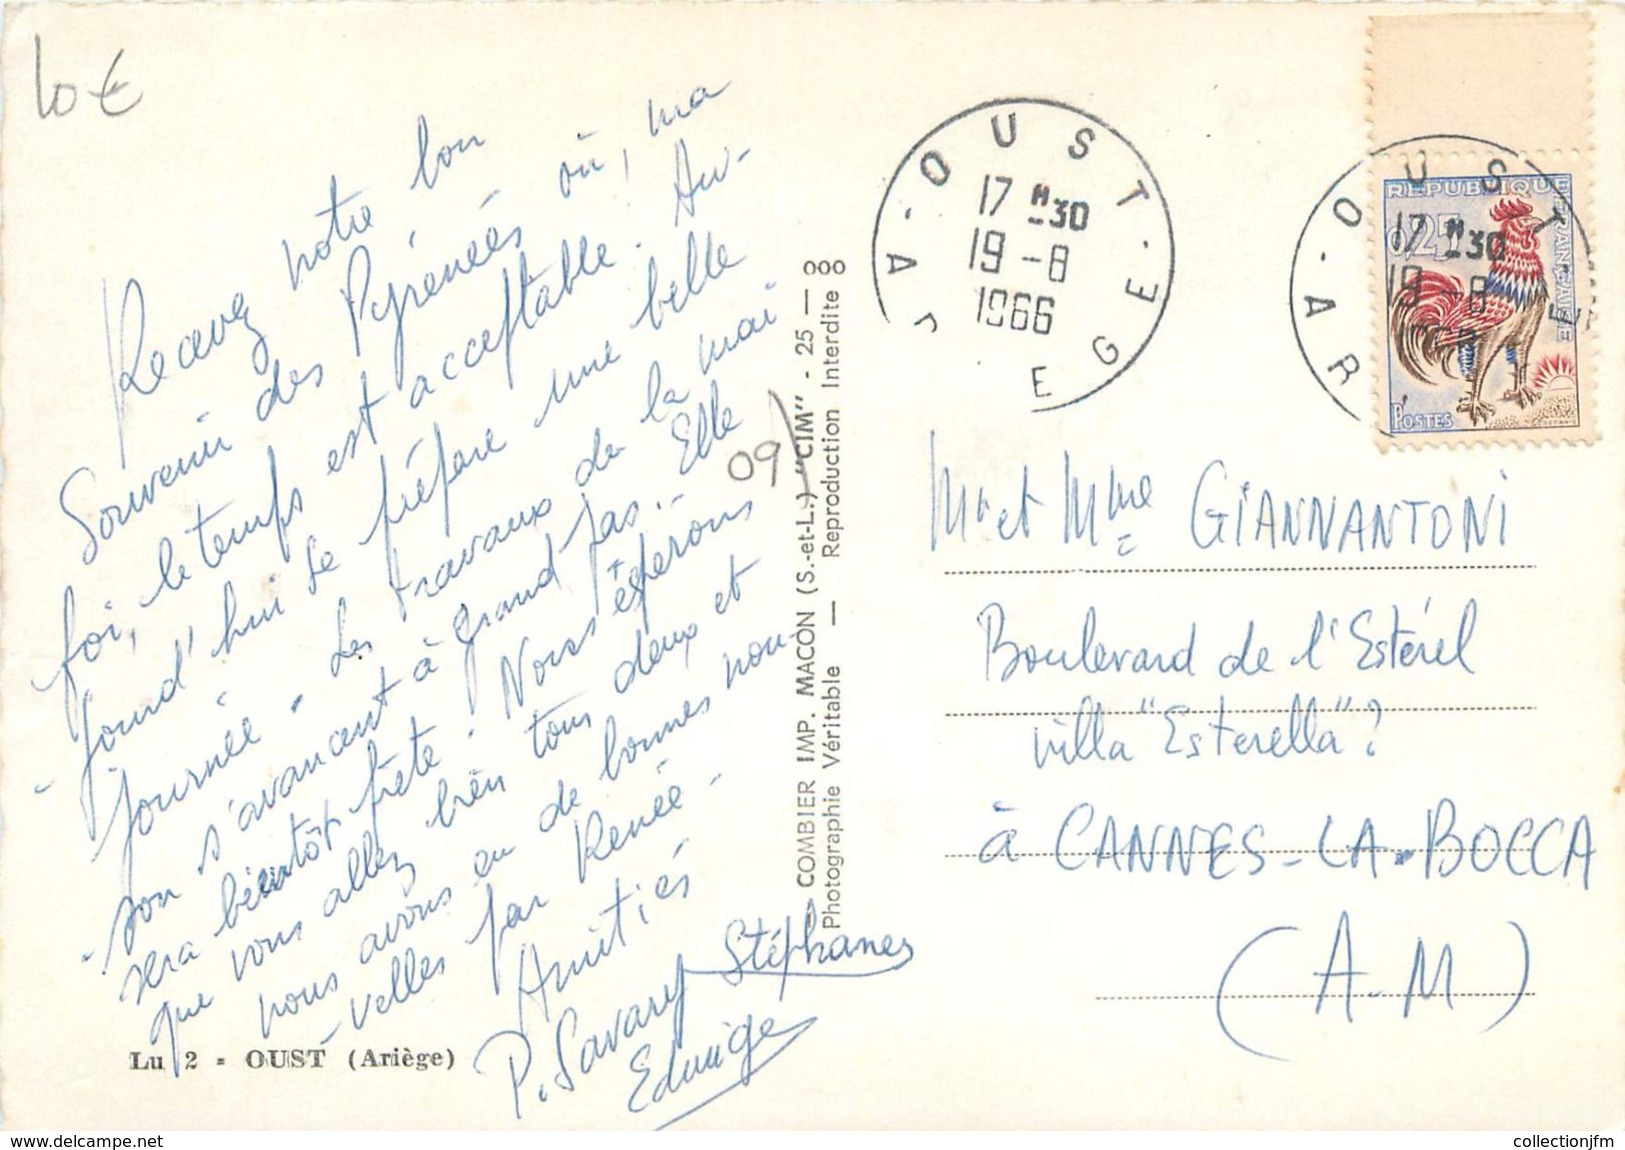 10 €
Recevez notre bon
Souvenir des Pyrénées où, ma
foi, le temps est acceptable. Au-
-jourd'hui se prépare une belle
journée. Les travaux de la mai
-son s'avancent à grand pas.. Elle
sera bientôt prête. Nous espérons
que vous allez bien tous deux et
nous avons eu de bonnes nou-
-velles par Renée -
Amitiés
P. Savary Stéphanes
Edwige
Lu 2 - OUST (Ariège)
09)
COMBIER IMP. MACON (S.-et-L.) "CIM" - 25 — 000
Photographie Véritable — Reproduction Interdite
OUST - ARIEGE
17 H 30
19 - 8
1966
OUST - AR
17 H 30
19 - 8
REPUBLIQUE FRANÇAISE
0,25
POSTES
Mr et Mme GIANNANTONI
Boulevard de l'Estérel
villa "Esterella"?
à CANNES-LA-BOCCA
(A-M)
collectionjfm